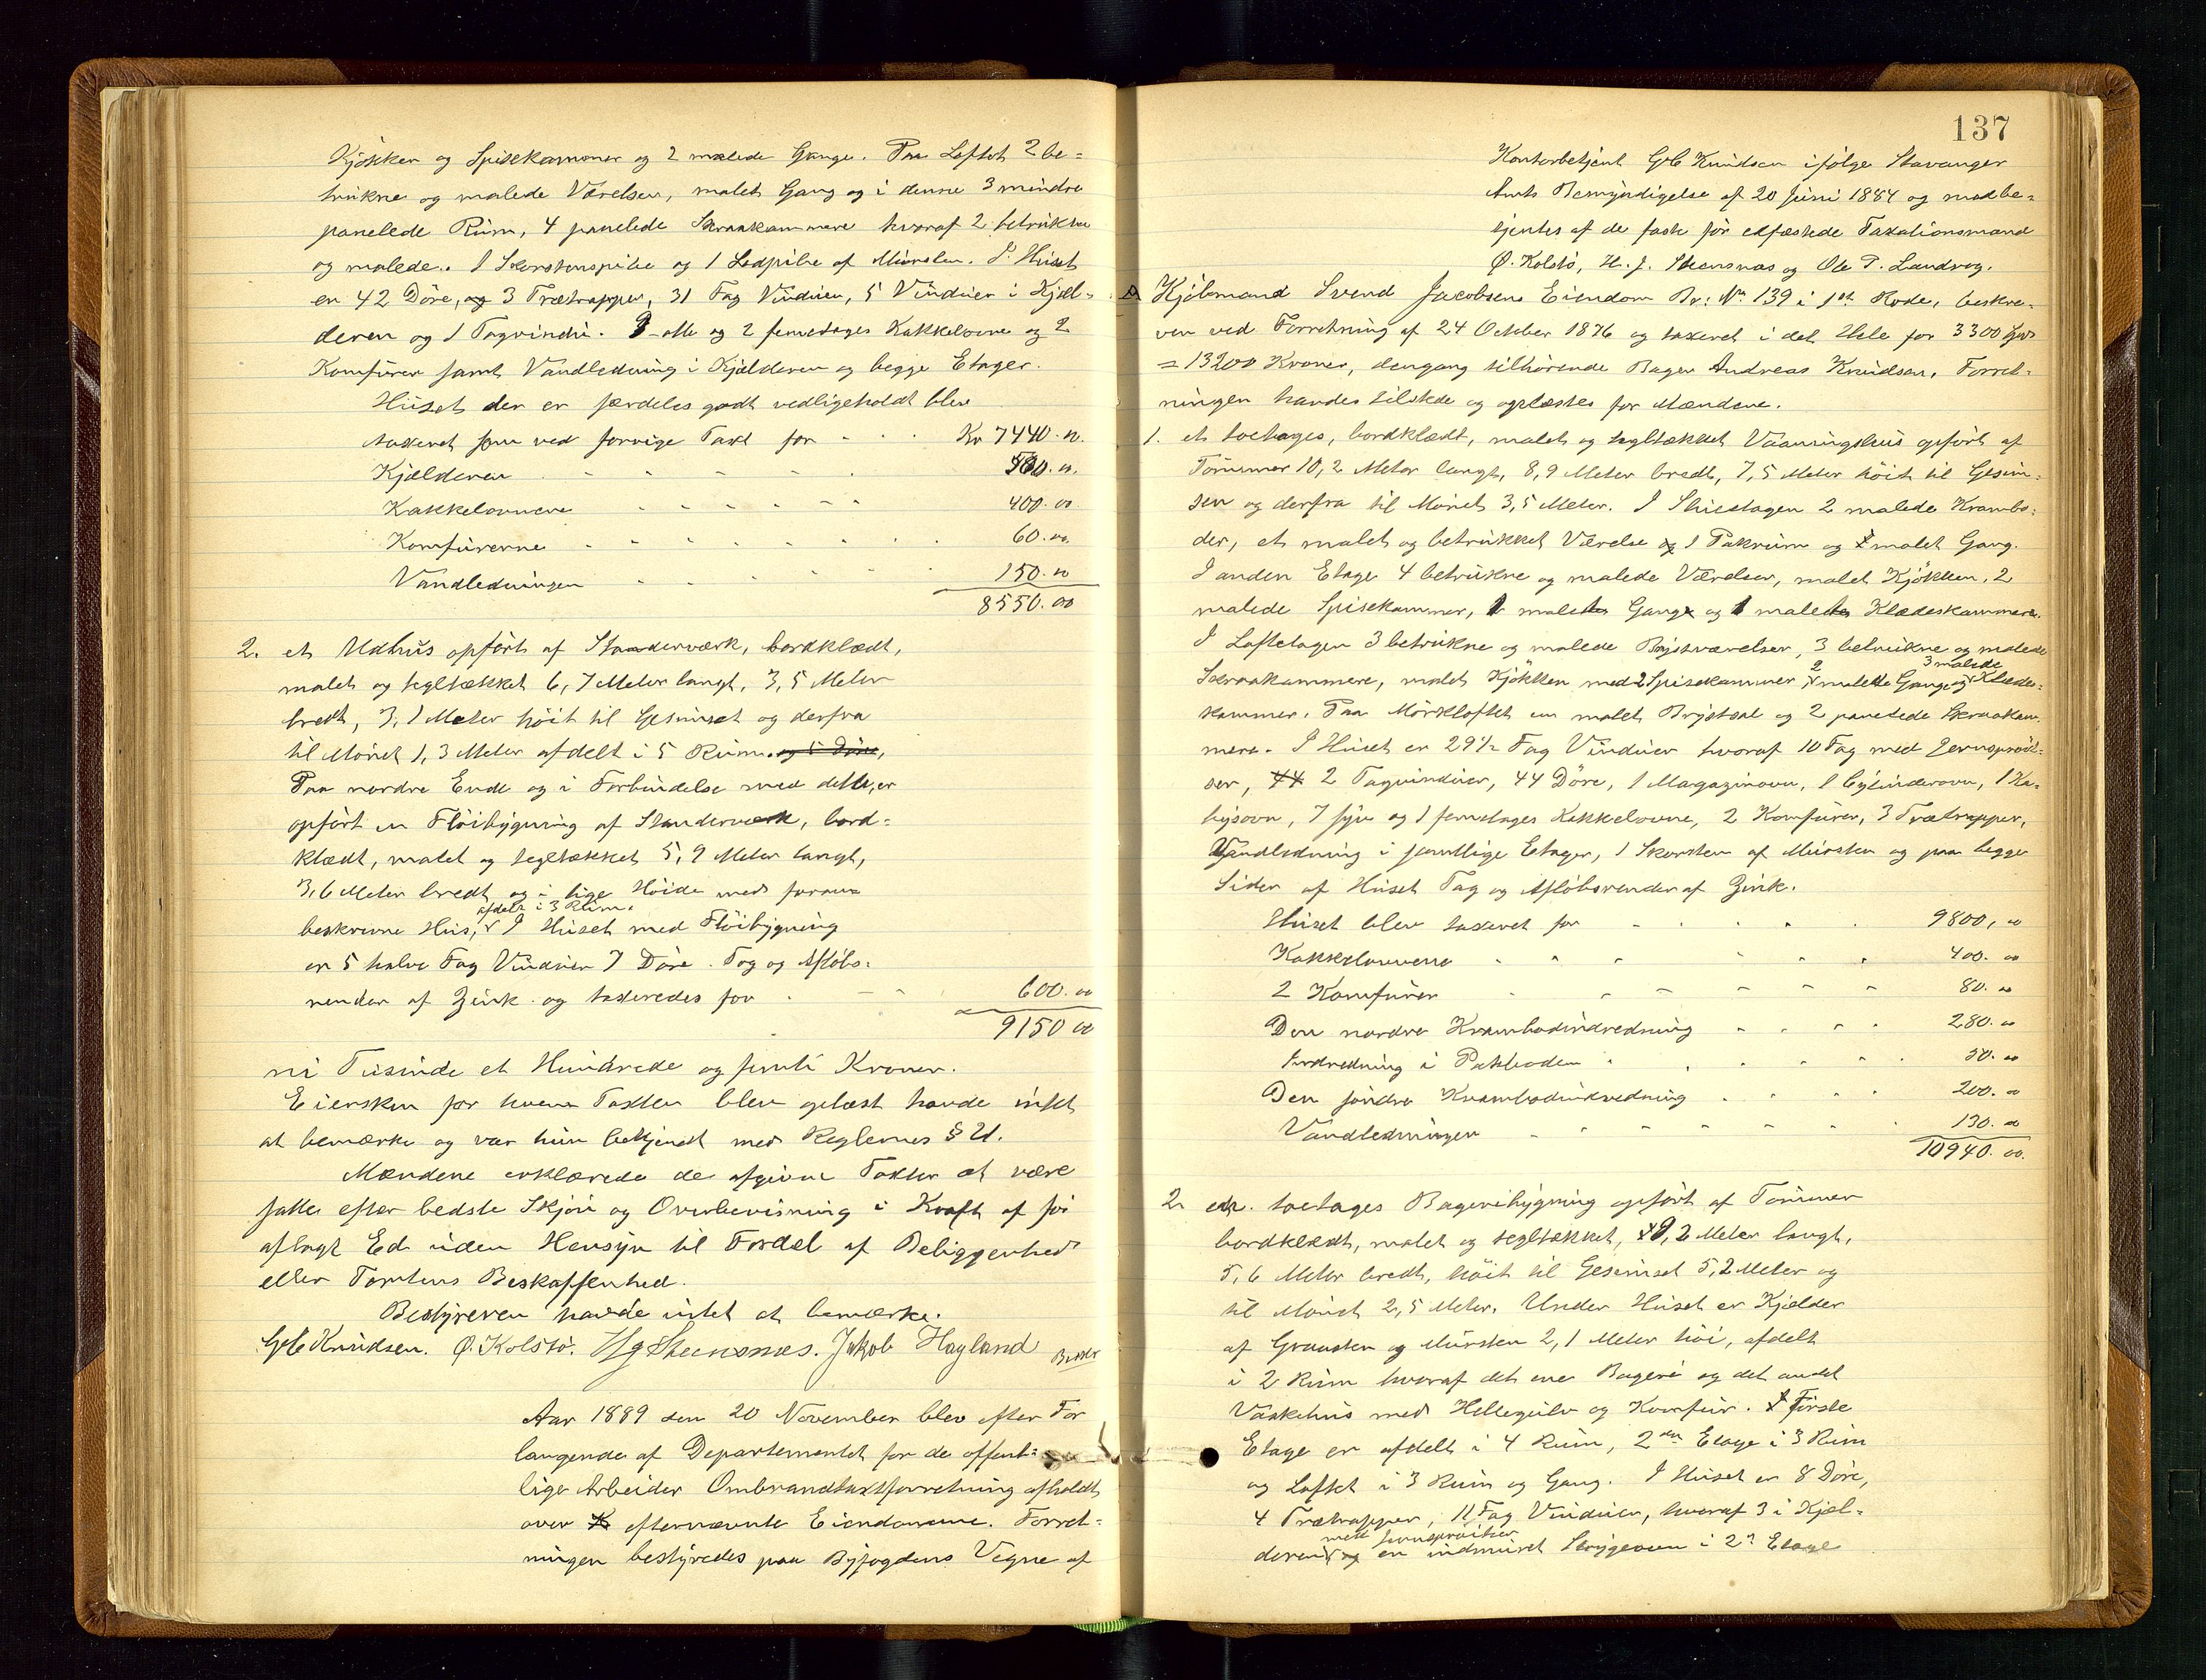 Kjøkken og Spisekammer og 2 malede Gange. Paa Loftet 2 be=
trukne og malede Værelser, malet Gang og i denne 3 mindre
panelede Rum, 4 panelede Skraakammere hvoraf 2 betrukne
og malede. 1 Skorstenspibe og 1 Lodpibe af Mursten. I Huset
er 42 Døre, og 3 Trætrapper, 31 Fag Vinduer, 5 Vinduer i Kjæl=
deren og 1 Tagvindu. otte og 2 femetages Kakkelovne og 2
Komfurer samt Vandledning i Kjælderen og begge Etager.
Huset der er særdeles godt vedligeholdt blev
taxeret som ved forrige Taxt for - - - Kr 7440.00.
Kjælderen 500.00.
Kakkelovnene 400.00
Komfurerne 60.00.
Vandledningen 150.00
8550.00
2. et Udhus opført af Standerværk, bordklædt,
malet og tegltækket 6,7 Meter langt, 3,5 Meter
bredt, 3,1 Meter høit til Gesimset og derfra
til Mønet 1,3 Meter afdelt i 5 Rum og 5 Døre,
Paa nordre Ende og i Forbindelse med dette, er
opført en Fløibygning af Standerværk, bord=
klædt, malet og tegltækket 5,9 Meter langt,
3,6 Meter bredt og i lige Høide med foran=
afdelt i 3 Rum.
beskrevne Hus, I Huset med Fløibygning
er 5 halve Fag Vinduer 7 Døre. Tag og Afløbs=
render af Zink og taxeredes for - - 600.00
9150 00
ni Tusinde et Hundrede og femti Kroner.
Eiersken for hvem Taxten blev oplæst havde intet
at bemærke og var hun bekjendt med Reglernes § 21.
Mændene erklærede de afgivne Taxter at være
satte efter bedste Skjøn og Overbevisning i Kraft af før
aflagt Ed uden Hensyn til Fordel af Beliggenhed
eller Tomtens Beskaffenhed.
Bestyreren havde intet at bemærke.
Gab Knudsen. Ø. Kolstø. H J Steensnæs. Jakob Hagland
Aar 1889 den 20 November blev efter For
langende af Departementet for de offent=
lige Arbeider Ombrandtaxtforretning afholdt
over efternævnte Eiendomme. Forret=
ningen bestyredes paa Byfogdens Vegne af
137
Kontorbetjent Gab Knudsen ifølge Stavanger
Amts Bemyndigelse af 20 Juni 1884 og medbe=
tjentes af de faste før edfæstede Taxationsmænd
Ø. Kolstø, H. J. Steensnæs og Ole T. Landrog.
Kjøbmand Svend Jacobsens Eiendom Br: No 139 i 1ste Rode, beskre=
ven ved Forretning af 24 October 1876 og taxeret i det Hele for 3300 Spd
= 13200 Kroner, dengang tilhørende Bager Andreas Knudsen. Forret=
ningen havdes tilstede og oplæstes for Mændene.
1. et toetages, bordklædt, malet og tegltækket Vaaningshus opført af
Tømmer 10,2 Meter langt, 8,9 Meter bredt, 7,5 Meter høit til Gesim=
sen og derfra til Mønet 3,5 Meter. I Stuetagen 2 malede Krambo=
der, et malet og betrukket Værelse og 1 Pakrum og 1 malet Gang.
I anden Etage 4 betrukne og malede Værelser, malet Kjøkken, 2
malede Spisekammer, 1 malet Gang og 1 malet Klædeskammer.
I Loftetagen 3 betrukne og malede Brystværelser, 3 betrukne og malede
2 3 malede
Skraakammere, malet Kjøkken med 2 Spisekammer, malede Gange og Klædes=
kammer. Paa Mørkloftet en malet Brystsal og 2 panelede Skraakam
mere. I Huset er 29½ Fag Vinduer hvoraf 10 Fag med Jernsprod=
ser, 44 2 Tagvinduer, 44 Døre, 1 Magazinovn, 1 Cylinderovn, 1 Ka=
bysovn, 7 syv og 1 femetages Kakkelovne, 2 Komfurer, 3 Trætrapper,
Vandledning i samtlige Etager, 1 Skorsten af Mursten og paa begge
Sider af Huset Tag og Afløbsrender af Zink.
Huset blev taxeret for 9800,00
Kakkelovnene 400.00
2 Komfurer 80.00
Den nordre Krambodindredning 280.00
Indredning i Pakboden 50.00
Den søndre Krambodindredning 200.00
Vandledningen 130.00
10940.00.
2. et toetages Bageribygning opført af Tømmer
bordklædt, malet og tegltækket, 10,2 Meter langt,
5,6 Meter bredt, høit til Gesimset 5,2 Meter og
til Mønet 2,5 Meter. Under Huset er Kjælder
af Graasten og Mursten 2,1 Meter høi, afdelt
i 2 Rum hvoraf det ene Bageri og det andet
Vaskehus med Hellegulv og Komfur. I Første
Etage er afdelt i 4 Rum, 2den Etage i 3 Rum
og Loftet i 3 Rum og Gang. I Huset er 8 Døre,
4 Trætrapper, 11 Fag Vinduer, hvoraf 3 i Kjæl=
med Jernsprodser
deren og en indmuret Strygeovn i 2n Etage